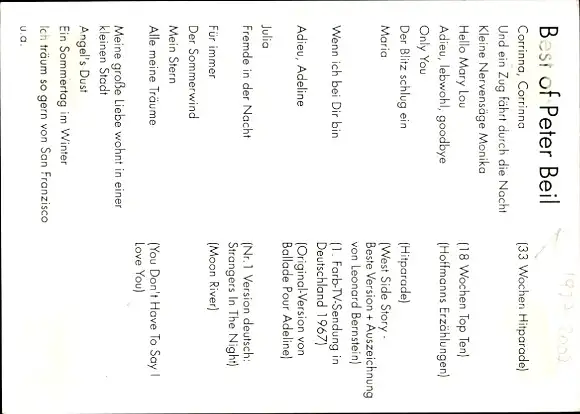 Best of Peter Beil
Corrinna, Corrinna (33 Wochen Hitparade)
Und ein Zug fährt durch die Nacht
Kleine Nervensäge Monika
Hello Mary Lou (18 Wochen Top Ten)
Adieu, lebwohl, goodbye (Hoffmanns Erzählungen)
Only You
Der Blitz schlug ein (Hitparade)
Maria (West Side Story -
Beste Version + Auszeichnung
von Leonard Bernstein)
Wenn ich bei Dir bin (1. Farb-TV-Sendung in
Deutschland 1967)
Adieu, Adeline (Original-Version von
Ballade Pour Adeline)
Julia
Fremde in der Nacht (Nr. 1 Version deutsch:
Strangers In The Night)
Für immer (Moon River)
Der Sommerwind
Mein Stern
Alle meine Träume (You Don't Have To Say I
love You)
Meine große Liebe wohnt in einer
kleinen Stadt
Angel's Dust
Ein Sommertag im Winter
Ich träum so gern von San Franzisco
u.a.